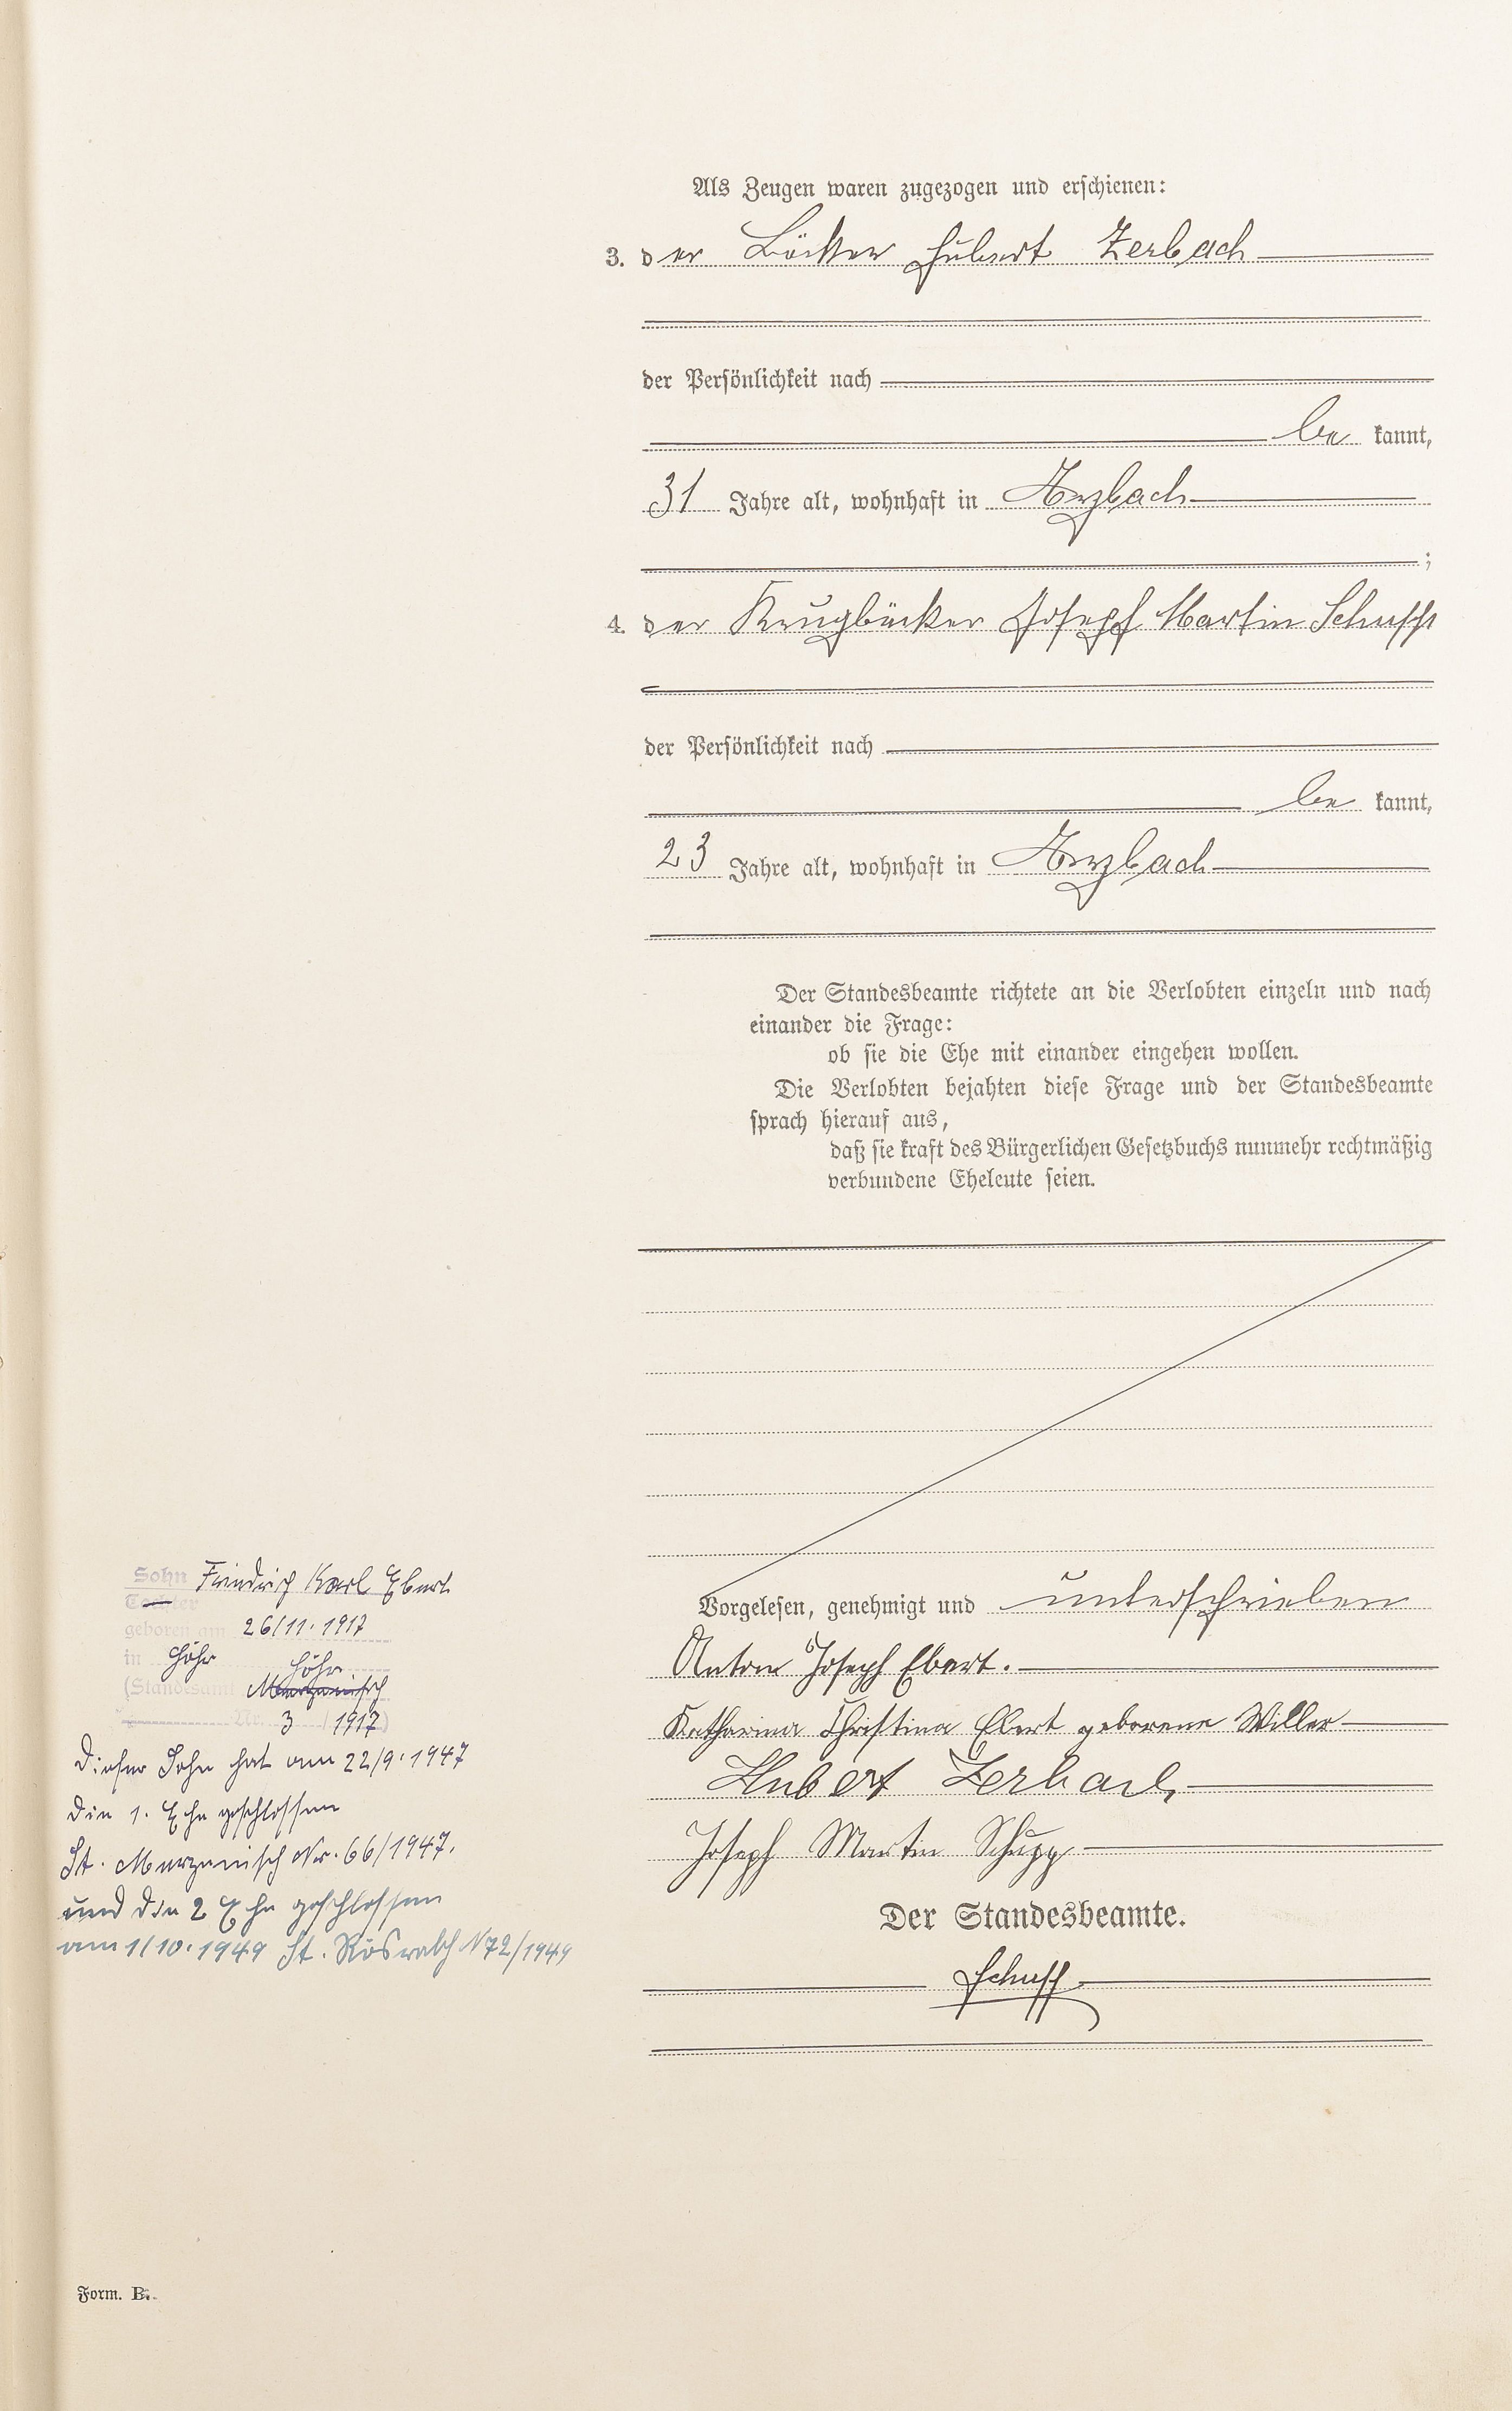 Als Zeugen waren zugezogen und erschienen:
3. der Bäcker Hubert Zerbach
der Persönlichkeit nach
be kannt,
31 Jahre alt, wohnhaft in Arzbach
;
4. der Krugbäcker Joseph Martin Schupp
der Persönlichkeit nach
be kannt,
23 Jahre alt, wohnhaft in Arzbach
Der Standesbeamte richtete an die Verlobten einzeln und nach
einander die Frage:
ob sie die Ehe mit einander eingehen wollen.
Die Verlobten bejahten diese Frage und der Standesbeamte
sprach hierauf aus,
daß sie kraft des Bürgerlichen Gesetzbuchs nunmehr rechtmäßig
verbundene Eheleute seien.
Vorgelesen, genehmigt und unterschrieben
Anton Joseph Ebert.
Katharina Christina Ebert geborene Willer
Hubert Zerbach
Joseph Martin Schupp
Der Standesbeamte.
Schupp
Sohn Friedrich Karl Ebert
Tochter
geboren am 26/11.1917
in Höhr Höhr
(Standesamt
Nr. 3 / 1917)
Dieser Sohn hat am 22/9.1947
die 1. Ehe geschlossen
St. Merzenich Nr. 66/1947.
und die 2 Ehe geschlossen
am 1/10.1949 St. Rösrath N 72/1949
Form. B.